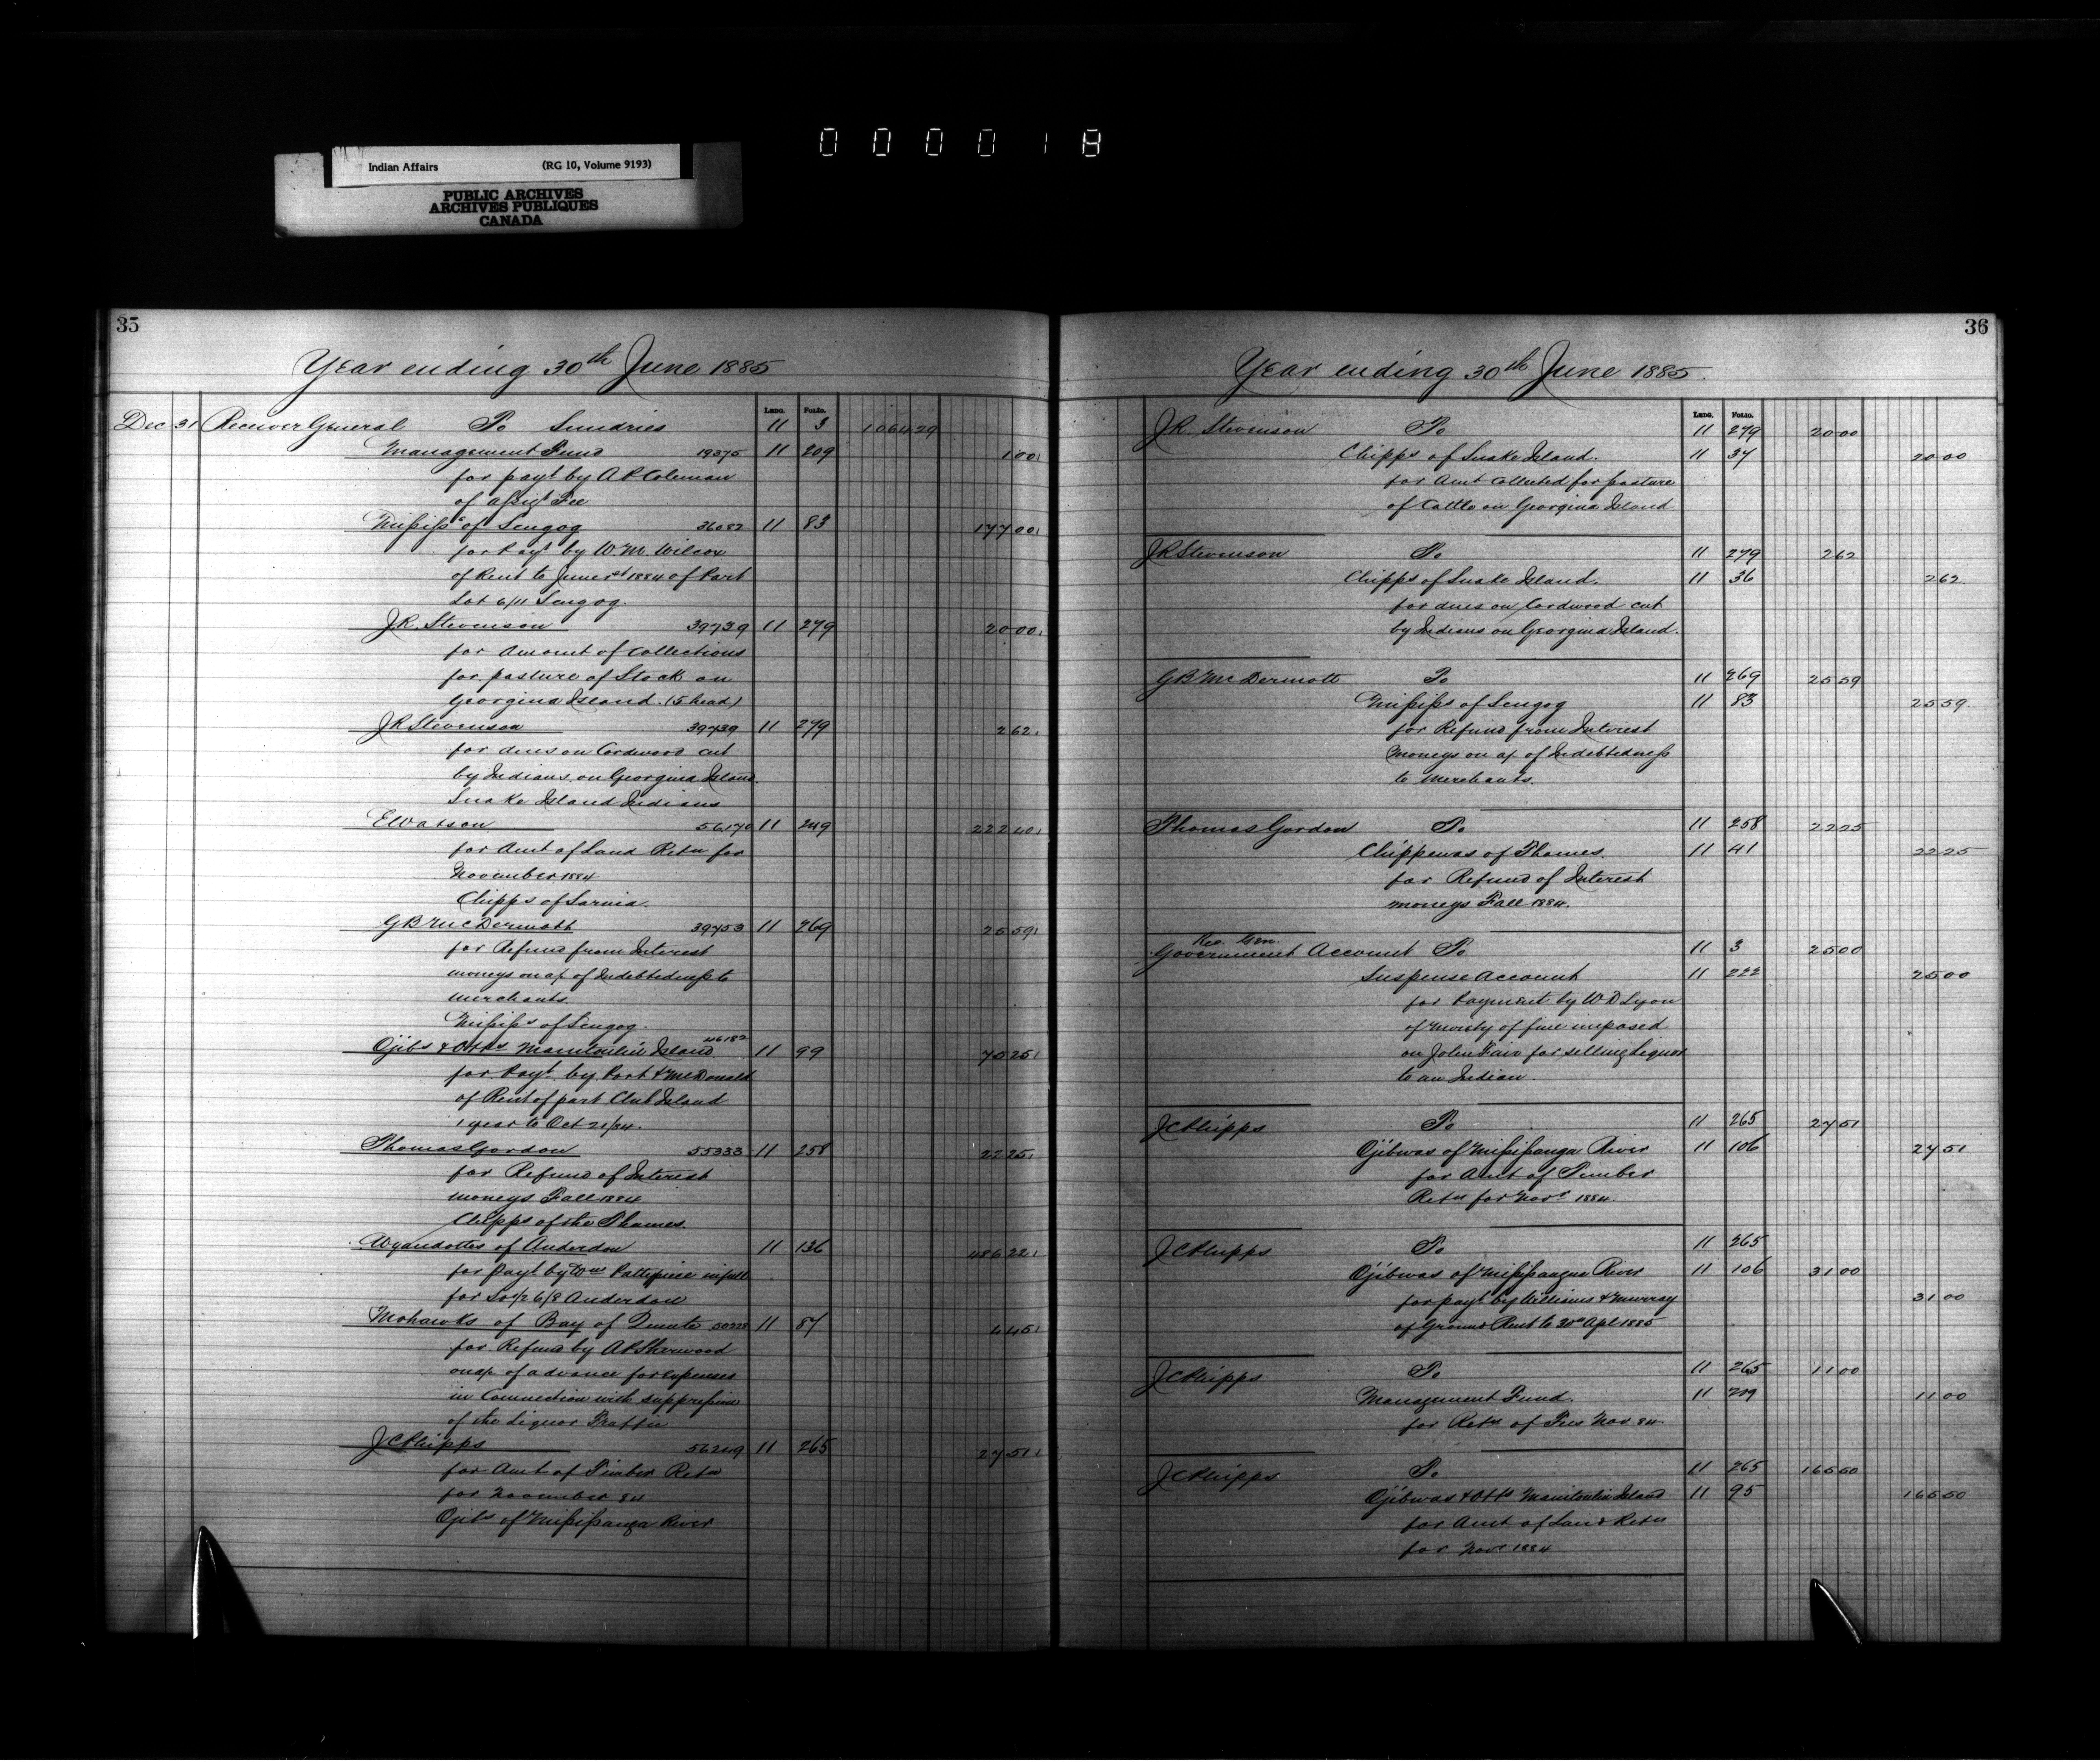 000018
Indian Affairs (RG 10, Volume 9193)
PUBLIC ARCHIVES
ARCHIVES PUBLIQUES
CANADA
35
Year ending 30th June 1885
Ledg. Folio.
Dec 31 Receiver General To Sundries 11 3 1064 29
Management Fund 19375 11 209 1 00
for payt by A P Coleman
of assigt Fee
Mississs of Scugog 36082 11 83 177 00
for Payt by W. M. Wilcox
of Rent to June 1st 1884 of Part
Lot 6/11 Scugog.
J.R. Stevenson 39739 11 279 20 00
for Amount of Collections
for pasture of Stock on
Georgina Island. (5 head)
J R Stevenson 39739 11 279 2 62
for dues on Cordwood cut
by Indians on Georgina Island
Snake Island Indians
E Watson 56170 11 249 222 40
for Amt of Land Retn for
November 1884
Chipps of Sarnia.
G B McDermott 39753 11 269 25 59
for Refund from Interest
moneys on a/c of Indebtedness to
merchants.
Mississs of Scugog.
Ojibs & Otts Manitoulin Island 46182 11 99 75 25
for Payt by Port & McDonald
of Rent of part Club Island
1 year to Oct 21/84.
Thomas Gordon 55333 11 258 22 25
for Refund of Interest
moneys Fall 1884
Chipps of the Thames.
Wyandottes of Anderdon 11 136 486 22
for payt by Wm in full
for 6/8 Anderdon
Mohawks of Bay of Quinte 50228 11 87 4 45
for Refund by A P Sherwood
on a/c of advance for expenses
in Connection with suppression
of the Liquor Traffic
J C Phipps 56219 11 265 27 51
for Amt of Timber Retn
for November 84
Ojibs of Mississauga River
36
Year ending 30th June 1885.
Ledg. Folio.
J R Stevenson To 11 279 20 00
Chipps of Snake Island. 11 37 20 00
for Amt Collected for pasture
of Cattle on Georgina Island
J R Stevenson To 11 279 2 62
Chipps of Snake Island. 11 36 2 62
for dues on Cordwood cut
by Indians on Georgina Island.
G B McDermott To 11 269 25 59
Mississs of Scugog 11 83 25 59
for Refund from Interest
moneys on a/c of Indebtedness
to Merchants.
Thomas Gordon To 11 258 22 25
Chippewas of Thames. 11 41 22 25
for Refund of Interest
moneys Fall 1884.
Rec. Gen.
Government Account To 11 3 25 00
Suspense Account 11 222 25 00
for Payment by W D Lyon
of moiety of fine imposed
on John Fair for selling Liquor
to an Indian.
J C Phipps To 11 265 27 51
Ojibwas of Mississauga River 11 106 27 51
for Amt of Timber
Retn for Novr 1884.
J C Phipps To 11 265
Ojibwas of Mississauga River 11 106 31 00
for payt by Williams & Murray 31 00
of Ground Rent to 30th Apl 1885
J C Phipps To 11 265 11 00
Management Fund. 11 209 11 00
for Retn of Fees Nov 84
J C Phipps To 11 265 165 50
Ojibwas & Otts Manitoulin Island 11 95 165 50
for Amt of Land Retn
for Novr 1884